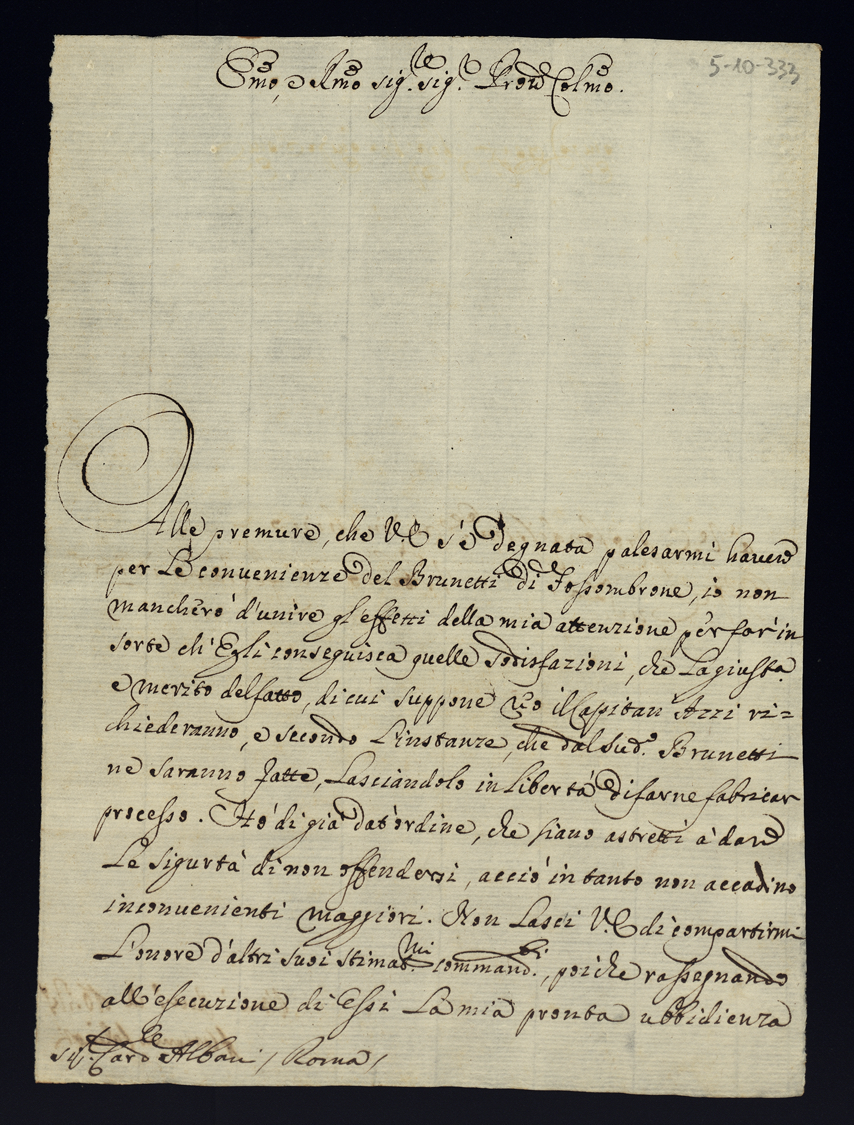 5-10-333
Emo, e Rmo Sig.re Sig.r Pron Colmo.
Alle premure, che V.E. s'è degnata palesarmi havere
per le convenienze del Brunetti di Fossombrone, io non
mancherò d'unire gl'effetti della mia attenzione per far in
sorte ch'Egli conseguisca quelle sodisfazioni, che la giusta
e merito del fatto, di cui suppone reo il Capitan Azzi ri=
chiederanno, e secondo l'instanze, che dal sud.o Brunetti
ne saranno fatte, lasciandolo in libertà di farne fabricar
processo. Hò di già dat'ordine, che siano astretti à dare
le sigurtà di non offendersi, acciò in tanto non accadino
inconvenienti maggiori. Non lasci V.E. di compartirmi
l'onore d'altri suoi stimat.mi command.ti, poiche rassegnando
all'esecuzione di essi la mia pronta ubbidienza
Sig. Card.le Albani / Roma /